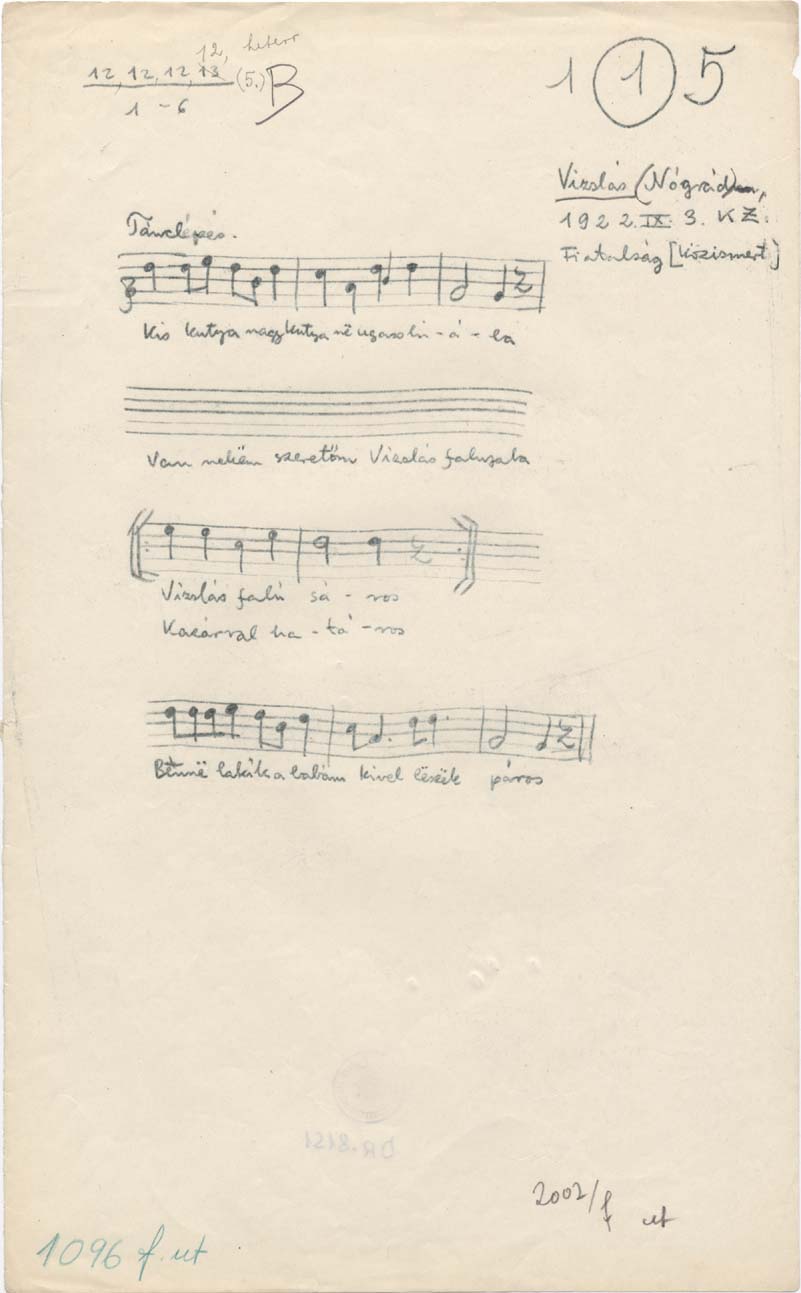 12, heterr
12, 12, 12, 13 (5.) B
1 - 6
1 1 5
Vizslás (Nógrád),
1922. IX. 3. K Z.
Fiatalság [közismert]
Tánclépés.
Kis kutya nagy kutya në ugasoli-á-la
Van nekëm szeretőm Vizslás faluzaba
Vizslás falú sá - ros
Kazárral ha - tá - ros
lakik a babám kivel lëszëk páros
DR. 8151
2002/f ut
1096 f. ut